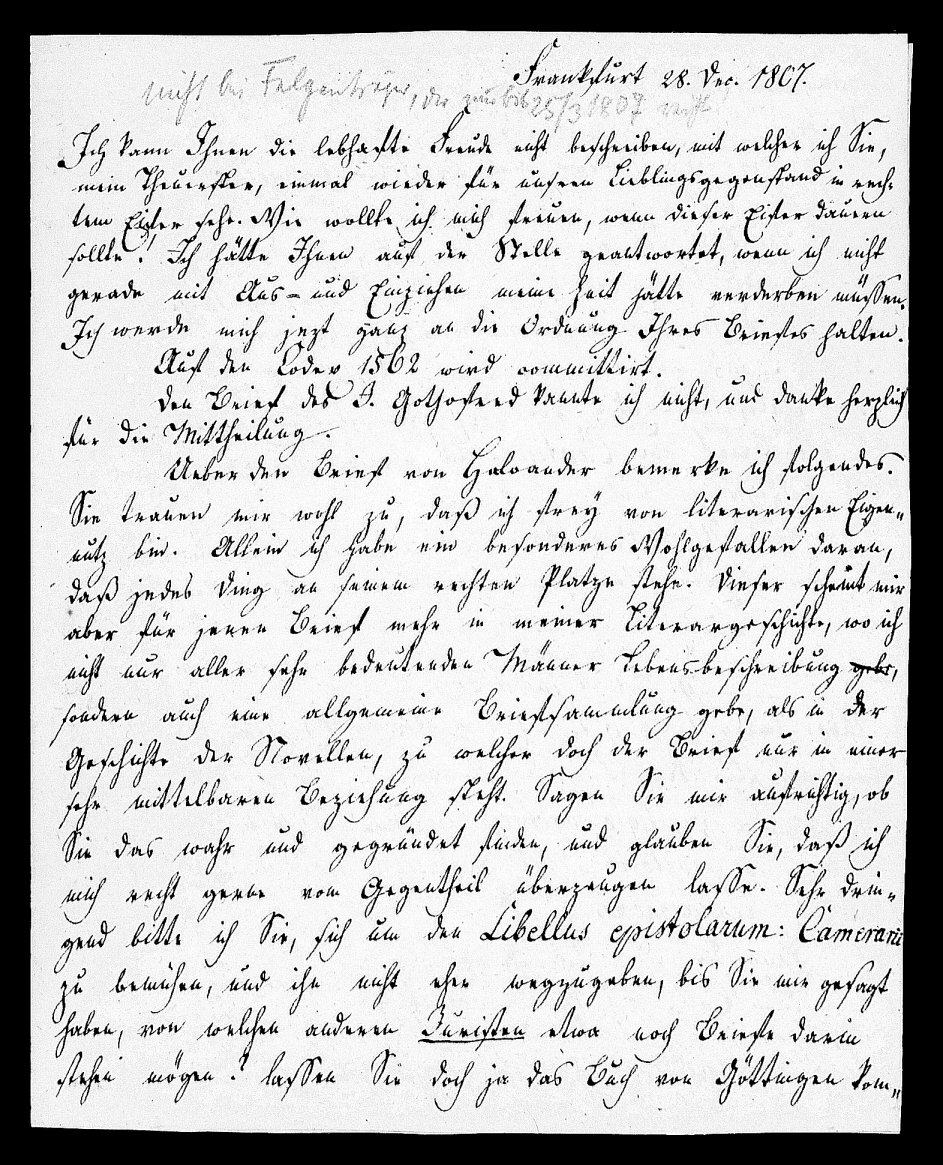 Frankfurt 28. Dec. 1807.
nicht bei Felgentraeger, der nur bis 25/3 1807 reicht
Ich kann Ihnen die lebhafte Freude nicht beschreiben, mit welcher ich Sie,
mein Theuerster, einmal wieder für unsern Lieblingsgegenstand in rech-
tem Eifer sehe. Wie wollte ich mich freuen, wenn dieser Eifer dauern
sollte! Ich hätte Ihnen auf der Stelle geantwortet, wenn ich nicht
gerade mit Aus- und Einziehen meine Zeit hätte verderben müssen.
Ich werde mich jezt ganz an die Ordnung Ihres Briefes halten.
Auf den Codex 1562 wird committirt.
Den Brief des J. Gothofred kannte ich nicht, und danke herzlich
für die Mittheilung.
Ueber den Brief von Haloander bemerke ich folgendes.
Sie trauen mir wohl zu, daß ich frey von literarischen Eigen-
nutz bin. Allein ich habe ein besonderes Wohlgefallen daran,
daß jedes Ding an seinem rechten Platze stehe. Dieser scheint mir
aber für jenen Brief mehr in meiner Literargeschichte, wo ich
nicht nur aller sehr bedeutenden Männer Lebensbeschreibung gebe,
sondern auch eine allgemeine Briefsammlung gebe, als in der
Geschichte der Novellen, zu welcher doch der Brief nur in einer
sehr mittelbaren Beziehung steht. Sagen Sie mir aufrichtig, ob
Sie das wahr und gegründet finden, und glauben Sie, daß ich
mich recht gerne vom Gegentheil überzeugen lasse. Sehr drin-
gend bitte ich Sie, sich um den Libellus epistolarum: Camerarii
zu bemühen, und ihn nicht eher wegzugeben, bis Sie mir gesagt
haben, von welchen anderen Juristen etwa noch Briefe darin
stehen mögen? lassen Sie doch ja das Buch von Göttingen kom-